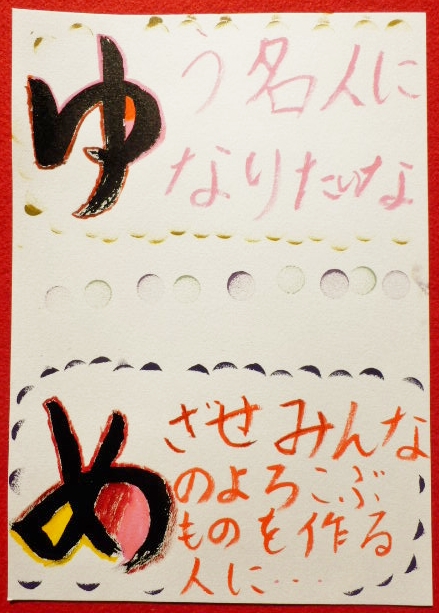 ゆう名人に
なりたいな
めざせみんな
のよろこぶ
ものを作る
人に…